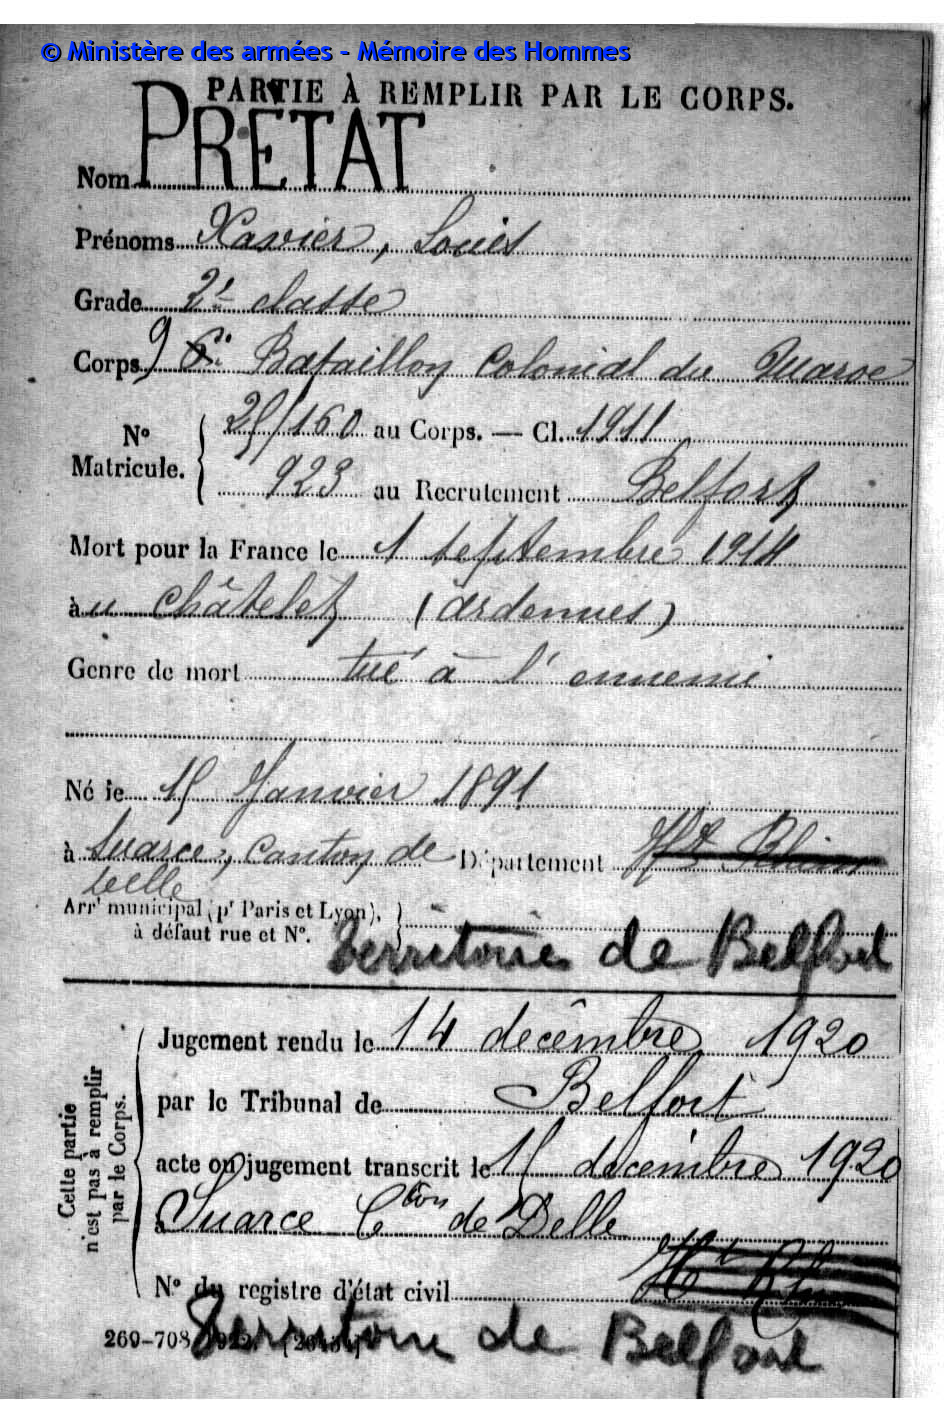 © Ministère des armées - Mémoire des Hommes
PARTIE À REMPLIR PAR LE CORPS.
Nom PRETAT
Prénoms Xavier, Louis
Grade 2e classe
Corps 9 Bataillon Colonial du Maroc
No Matricule. 25/160 au Corps. — Cl. 1911
923 au Recrutement Belfort
Mort pour la France le 1 septembre 1914
à u Châtelet (Ardennes)
Genre de mort tué à l'ennemi
Né le 15 Janvier 1891
à Suarce, canton de Delle Département Ht Rhin
Arrt municipal (pr Paris et Lyon),
à défaut rue et N°.
Territoire de Belfort
Cette partie
n'est pas à remplir
par le Corps.
Jugement rendu le 14 décembre 1920
par le Tribunal de Belfort
acte ou jugement transcrit le 15 décembre 1920
à Suarce Cton de Delle
N° du registre d'état civil Ht Rhin
Territoire de Belfort
269-708